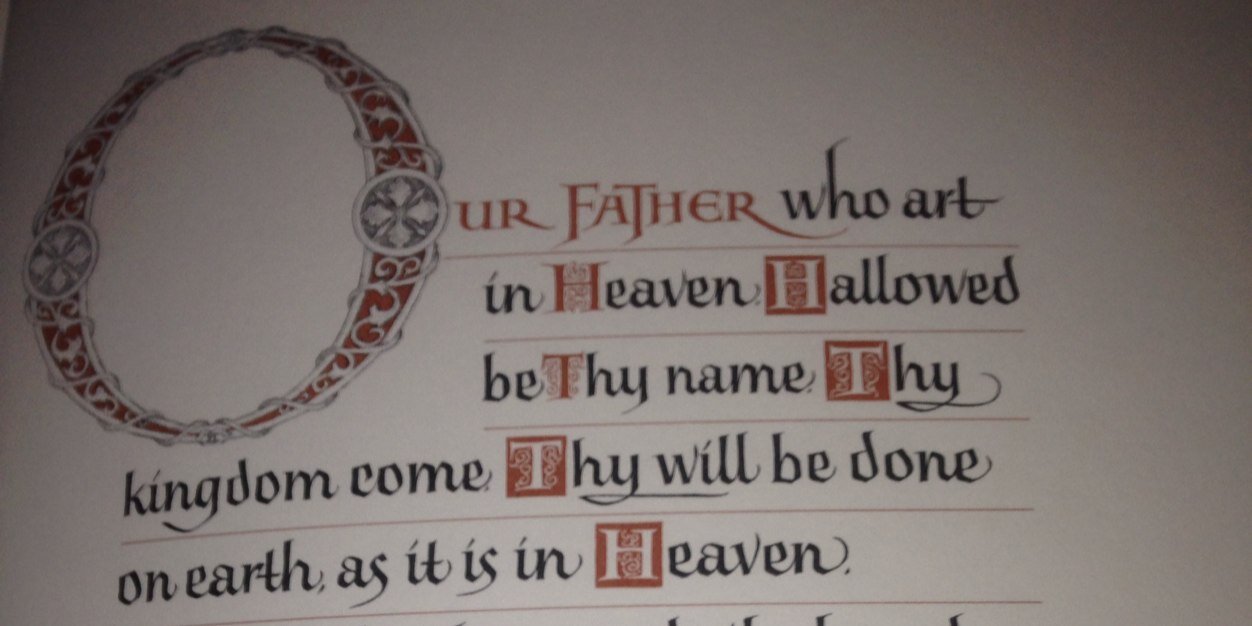 OUR FATHER who art
in Heaven. Hallowed
be Thy name. Thy
kingdom come. Thy will be done
on earth, as it is in Heaven.